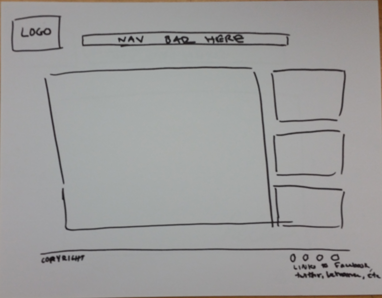 LOGO
NAV BAR HERE
COPYRIGHT
LINKS TO FACEBOOK
twitter, behance, etc